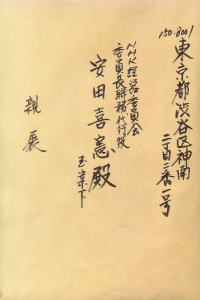 150-8001
東京都渋谷区神南
二丁目二番一号
NHK経営委員会
委員長職務代行役
安田喜憲殿
玉案下
親展